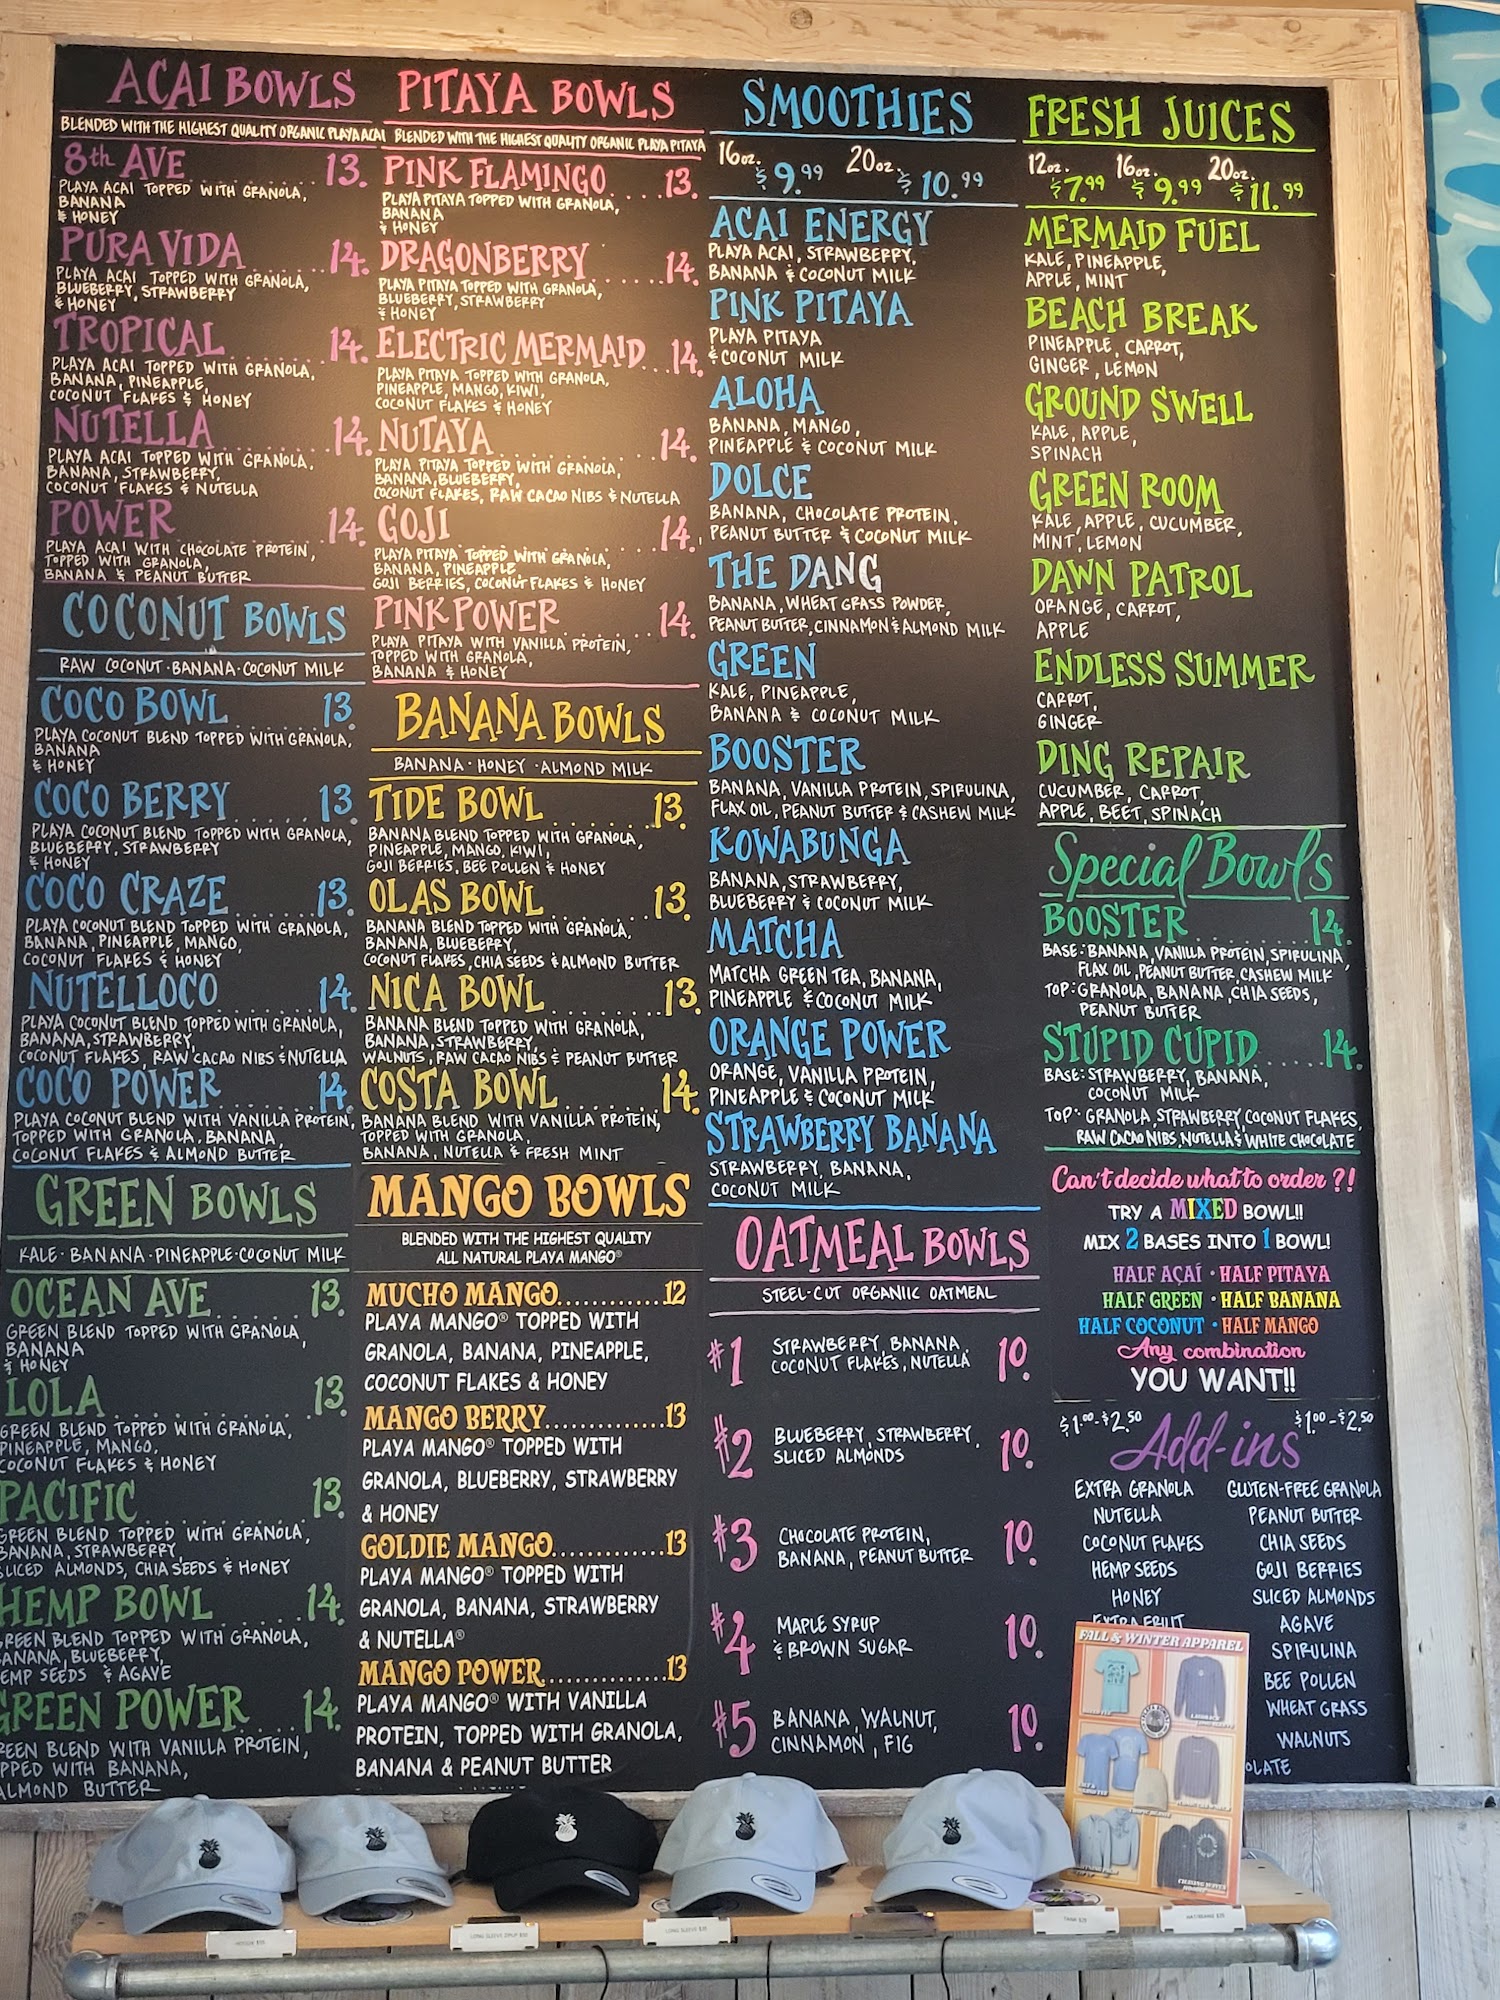 ACAI BOWLS
BLENDED WITH THE HIGHEST QUALITY ORGANIC PLAYA ACAI
8th AVE 13.
PLAYA ACAI TOPPED WITH GRANOLA,
BANANA
& HONEY
PURA VIDA 14.
PLAYA ACAI TOPPED WITH GRANOLA,
BLUEBERRY, STRAWBERRY
& HONEY
TROPICAL 14.
PLAYA ACAI TOPPED WITH GRANOLA,
BANANA, PINEAPPLE,
COCONUT FLAKES & HONEY
NUTELLA 14.
PLAYA ACAI TOPPED WITH GRANOLA,
BANANA, STRAWBERRY,
COCONUT FLAKES & NUTELLA
POWER 14.
PLAYA ACAI WITH CHOCOLATE PROTEIN,
TOPPED WITH GRANOLA,
BANANA & PEANUT BUTTER
COCONUT BOWLS
RAW COCONUT · BANANA · COCONUT MILK
COCO BOWL 13.
PLAYA COCONUT BLEND TOPPED WITH GRANOLA,
BANANA
& HONEY
COCO BERRY 13.
PLAYA COCONUT BLEND TOPPED WITH GRANOLA,
BLUEBERRY, STRAWBERRY
& HONEY
COCO CRAZE 13.
PLAYA COCONUT BLEND TOPPED WITH GRANOLA,
BANANA, PINEAPPLE, MANGO,
COCONUT FLAKES & HONEY
NUTELLOCO 14.
PLAYA COCONUT BLEND TOPPED WITH GRANOLA,
BANANA, STRAWBERRY,
COCONUT FLAKES, RAW CACAO NIBS & NUTELLA
COCO POWER 14.
PLAYA COCONUT BLEND WITH VANILLA PROTEIN,
TOPPED WITH GRANOLA, BANANA,
COCONUT FLAKES & ALMOND BUTTER
GREEN BOWLS
KALE · BANANA · PINEAPPLE · COCONUT MILK
OCEAN AVE 13.
GREEN BLEND TOPPED WITH GRANOLA,
BANANA
& HONEY
LOLA 13.
GREEN BLEND TOPPED WITH GRANOLA,
PINEAPPLE, MANGO,
COCONUT FLAKES & HONEY
PACIFIC 13.
GREEN BLEND TOPPED WITH GRANOLA,
BANANA, STRAWBERRY,
SLICED ALMONDS, CHIA SEEDS & HONEY
HEMP BOWL 14.
GREEN BLEND TOPPED WITH GRANOLA,
BANANA, BLUEBERRY,
HEMP SEEDS & AGAVE
GREEN POWER 14.
REEN BLEND WITH VANILLA PROTEIN,
PPED WITH BANANA,
ALMOND BUTTER
PITAYA BOWLS
BLENDED WITH THE HIGHEST QUALITY ORGANIC PLAYA PITAYA
PINK FLAMINGO 13.
PLAYA PITAYA TOPPED WITH GRANOLA,
BANANA
& HONEY
DRAGONBERRY 14.
PLAYA PITAYA TOPPED WITH GRANOLA,
BLUEBERRY, STRAWBERRY
& HONEY
ELECTRIC MERMAID 14.
PLAYA PITAYA TOPPED WITH GRANOLA,
PINEAPPLE, MANGO, KIWI,
COCONUT FLAKES & HONEY
NUTAYA 14.
PLAYA PITAYA TOPPED WITH GRANOLA,
BANANA, BLUEBERRY,
COCONUT FLAKES, RAW CACAO NIBS & NUTELLA
GOJI 14.
PLAYA PITAYA TOPPED WITH GRANOLA,
BANANA, PINEAPPLE
GOJI BERRIES, COCONUT FLAKES & HONEY
PINK POWER 14.
PLAYA PITAYA WITH VANILLA PROTEIN,
TOPPED WITH GRANOLA,
BANANA & HONEY
BANANA BOWLS
BANANA · HONEY · ALMOND MILK
TIDE BOWL 13.
BANANA BLEND TOPPED WITH GRANOLA,
PINEAPPLE, MANGO, KIWI,
GOJI BERRIES, BEE POLLEN & HONEY
OLAS BOWL 13.
BANANA BLEND TOPPED WITH GRANOLA,
BANANA, BLUEBERRY,
COCONUT FLAKES, CHIA SEEDS & ALMOND BUTTER
NICA BOWL 13.
BANANA BLEND TOPPED WITH GRANOLA,
BANANA, STRAWBERRY,
WALNUTS, RAW CACAO NIBS & PEANUT BUTTER
COSTA BOWL 14.
BANANA BLEND WITH VANILLA PROTEIN,
TOPPED WITH GRANOLA,
BANANA, NUTELLA & FRESH MINT
MANGO BOWLS
BLENDED WITH THE HIGHEST QUALITY
ALL NATURAL PLAYA MANGO®
MUCHO MANGO............12
PLAYA MANGO® TOPPED WITH
GRANOLA, BANANA, PINEAPPLE,
COCONUT FLAKES & HONEY
MANGO BERRY.............13
PLAYA MANGO® TOPPED WITH
GRANOLA, BLUEBERRY, STRAWBERRY
& HONEY
GOLDIE MANGO............13
PLAYA MANGO® TOPPED WITH
GRANOLA, BANANA, STRAWBERRY
& NUTELLA®
MANGO POWER.............13
PLAYA MANGO® WITH VANILLA
PROTEIN, TOPPED WITH GRANOLA,
BANANA & PEANUT BUTTER
SMOOTHIES
16oz. $9.99 20oz. $10.99
ACAI ENERGY
PLAYA ACAI, STRAWBERRY,
BANANA & COCONUT MILK
PINK PITAYA
PLAYA PITAYA
& COCONUT MILK
ALOHA
BANANA, MANGO,
PINEAPPLE & COCONUT MILK
DOLCE
BANANA, CHOCOLATE PROTEIN,
PEANUT BUTTER & COCONUT MILK
THE DANG
BANANA, WHEAT GRASS POWDER,
PEANUT BUTTER, CINNAMON & ALMOND MILK
GREEN
KALE, PINEAPPLE,
BANANA & COCONUT MILK
BOOSTER
BANANA, VANILLA PROTEIN, SPIRULINA,
FLAX OIL, PEANUT BUTTER & CASHEW MILK
KOWABUNGA
BANANA, STRAWBERRY,
BLUEBERRY & COCONUT MILK
MATCHA
MATCHA GREEN TEA, BANANA,
PINEAPPLE & COCONUT MILK
ORANGE POWER
ORANGE, VANILLA PROTEIN,
PINEAPPLE & COCONUT MILK
STRAWBERRY BANANA
STRAWBERRY, BANANA,
COCONUT MILK
OATMEAL BOWLS
STEEL-CUT ORGANIIC OATMEAL
#1 STRAWBERRY, BANANA, 10.
COCONUT FLAKES, NUTELLA
#2 BLUEBERRY, STRAWBERRY, 10.
SLICED ALMONDS
#3 CHOCOLATE PROTEIN, 10.
BANANA, PEANUT BUTTER
#4 MAPLE SYRUP 10.
& BROWN SUGAR
#5 BANANA, WALNUT, 10.
CINNAMON, FIG
FRESH JUICES
12oz. $7.99 16oz. $9.99 20oz. $11.99
MERMAID FUEL
KALE, PINEAPPLE,
APPLE, MINT
BEACH BREAK
PINEAPPLE, CARROT,
GINGER, LEMON
GROUND SWELL
KALE, APPLE,
SPINACH
GREEN ROOM
KALE, APPLE, CUCUMBER,
MINT, LEMON
DAWN PATROL
ORANGE, CARROT,
APPLE
ENDLESS SUMMER
CARROT,
GINGER
DING REPAIR
CUCUMBER, CARROT,
APPLE, BEET, SPINACH
Special Bowls
BOOSTER 14.
BASE: BANANA, VANILLA PROTEIN, SPIRULINA,
FLAX OIL, PEANUT BUTTER, CASHEW MILK
TOP: GRANOLA, BANANA, CHIA SEEDS,
PEANUT BUTTER
STUPID CUPID 14.
BASE: STRAWBERRY, BANANA,
COCONUT MILK
TOP: GRANOLA, STRAWBERRY, COCONUT FLAKES,
RAW CACAO NIBS, NUTELLA & WHITE CHOCOLATE
Can't decide what to order?!
TRY A MIXED BOWL!!
MIX 2 BASES INTO 1 BOWL!
HALF AÇAÍ · HALF PITAYA
HALF GREEN · HALF BANANA
HALF COCONUT · HALF MANGO
Any combination
YOU WANT!!
$1.00-$2.50 Add-ins $1.00-$2.50
EXTRA GRANOLA GLUTEN-FREE GRANOLA
NUTELLA PEANUT BUTTER
COCONUT FLAKES CHIA SEEDS
HEMP SEEDS GOJI BERRIES
HONEY SLICED ALMONDS
EXTRA FRUIT AGAVE
SPIRULINA
BEE POLLEN
WHEAT GRASS
WALNUTS
OLATE
FALL & WINTER APPAREL